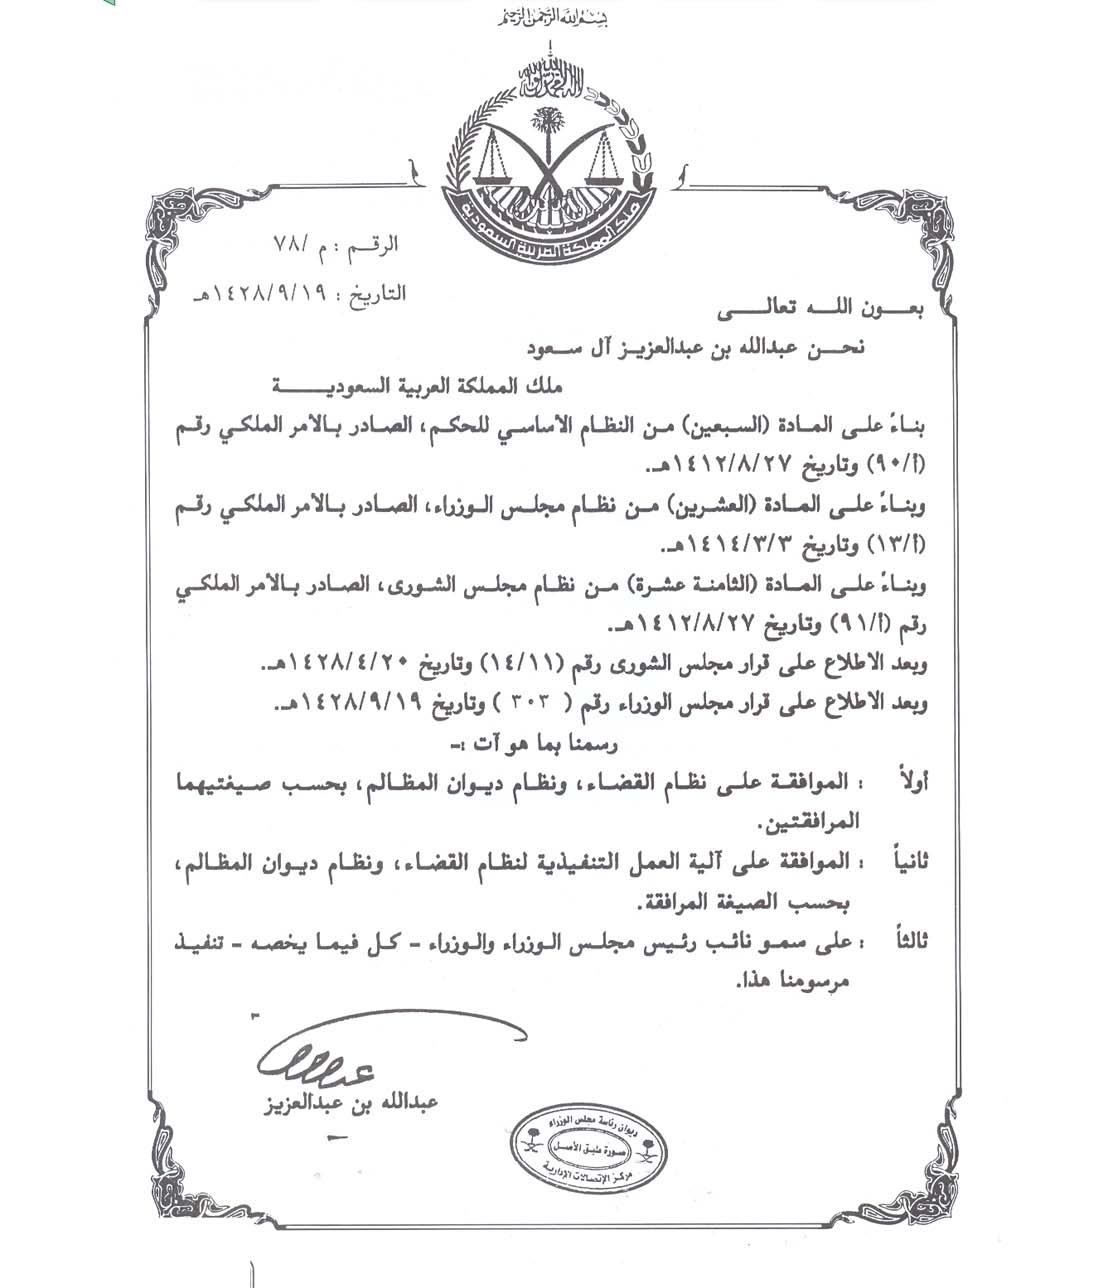 بسم الله الرحمن الرحيم
لا إله إلا الله محمد رسول الله
ملك المملكة العربية السعودية
الرقـم : م /٧٨
التاريخ : ١٤٢٨/٩/١٩هـ
بعـــون اللـــه تعالـــى
نحـــن عبدالله بن عبدالعزيـز آل سـعود
ملك المملكة العربية السعوديـــــة
بنـاءً علـى المـادة (السـبعين) مـن النظـام الأساسـي للحكـم، الصـادر بـالأمر الملكـي رقـم
(أ/٩٠) وتاريخ ١٤١٢/٨/٢٧هـ.
وبنـاءً علـى المـادة (العشـرين) مـن نظـام مجلـس الـوزراء، الصـادر بـالأمر الملكـي رقـم
(أ/١٣) وتاريخ ١٤١٤/٣/٣هـ.
وبنـاءً علـى المـادة (الثامنـة عشـرة) مـن نظـام مجلـس الشـورى، الصـادر بـالأمر الملكـي
رقم (أ/٩١) وتاريخ ١٤١٢/٨/٢٧هـ.
وبعد الاطلاع على قرار مجلس الشورى رقم (١٤/١١) وتاريخ ١٤٢٨/٤/٢٠هـ.
وبعد الاطلاع على قرار مجلس الوزراء رقم ( ٣٠٣ ) وتاريخ ١٤٢٨/٩/١٩هـ.
رسمنا بما هو آت :-
أولاً : الموافقـة علـى نظـام القضـاء، ونظـام ديـوان المظـالم، بحسـب صـيغتيهما
المرافقتين.
ثانياً : الموافقة على آلية العمل التنفيذية لنظام القضـاء، ونظـام ديـوان المظـالم،
بحسب الصيغة المرافقة.
ثالثاً : علـى سـمو نائـب رئـيس مجلـس الـوزراء والـوزراء - كـل فيمـا يخصـه - تنفيـذ
مرسومنا هذا.
عبدالله بن عبدالعزيز
ديوان رئاسة مجلس الوزراء
صورة طبق الأصل
مركز الإتصالات الإدارية